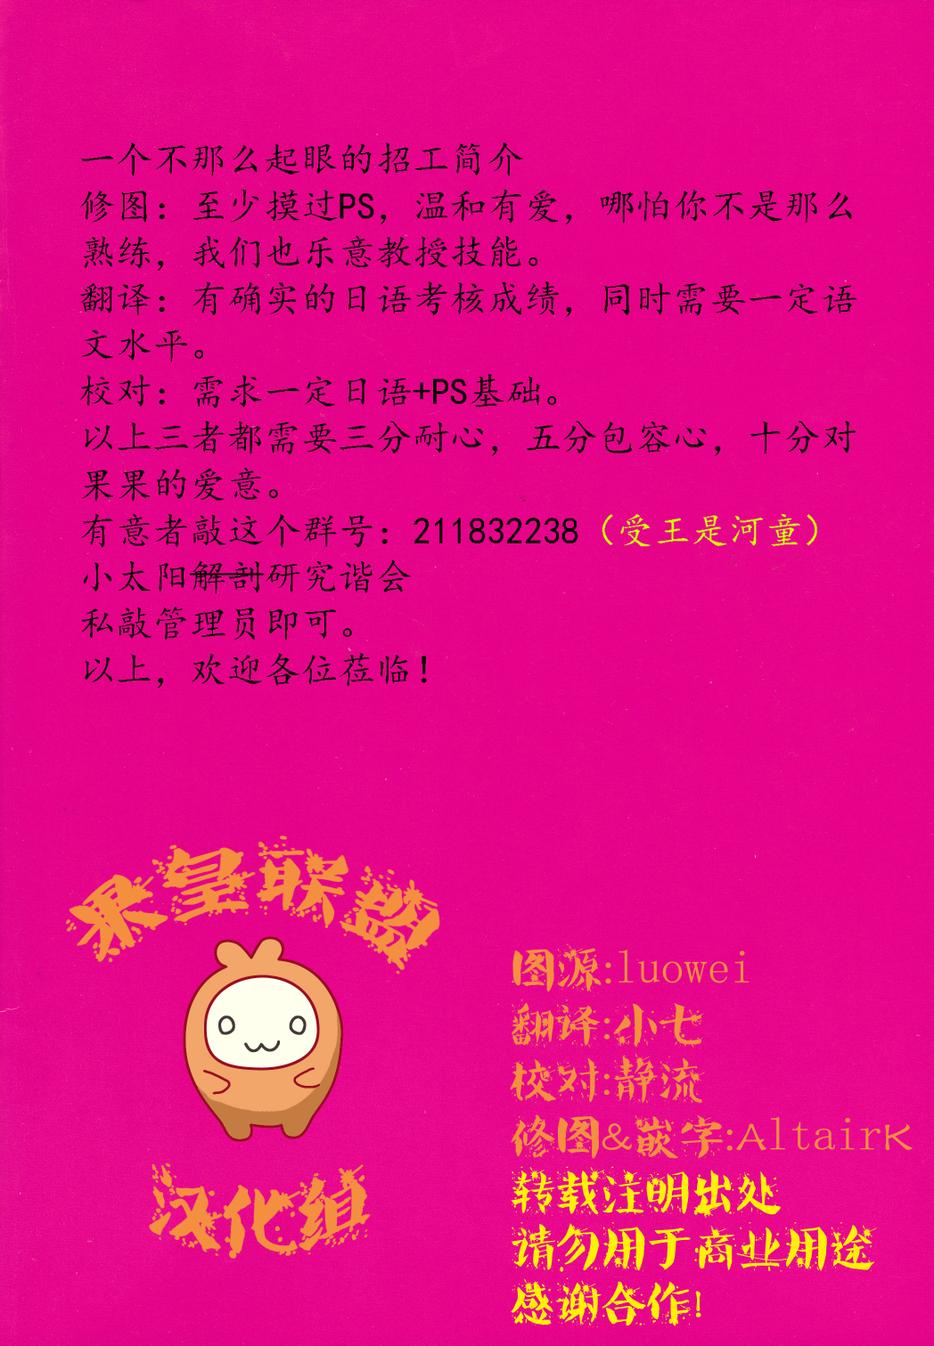 一个不那么起眼的招工简介
修图：至少摸过PS，温和有爱，哪怕你不是那么
熟练，我们也乐意教授技能。
翻译：有确实的日语考核成绩，同时需要一定语
文水平。
校对：需求一定日语+PS基础。
以上三者都需要三分耐心，五分包容心，十分对
果果的爱意。
有意者敲这个群号：211832238（受王是河童）
小太阳解剖研究谐会
私敲管理员即可。
以上，欢迎各位莅临！
果皇联盟
汉化组
图源:luowei
翻译:小七
校对:静流
修图&嵌字:AltairK
转载注明出处
请勿用于商业用途
感谢合作!